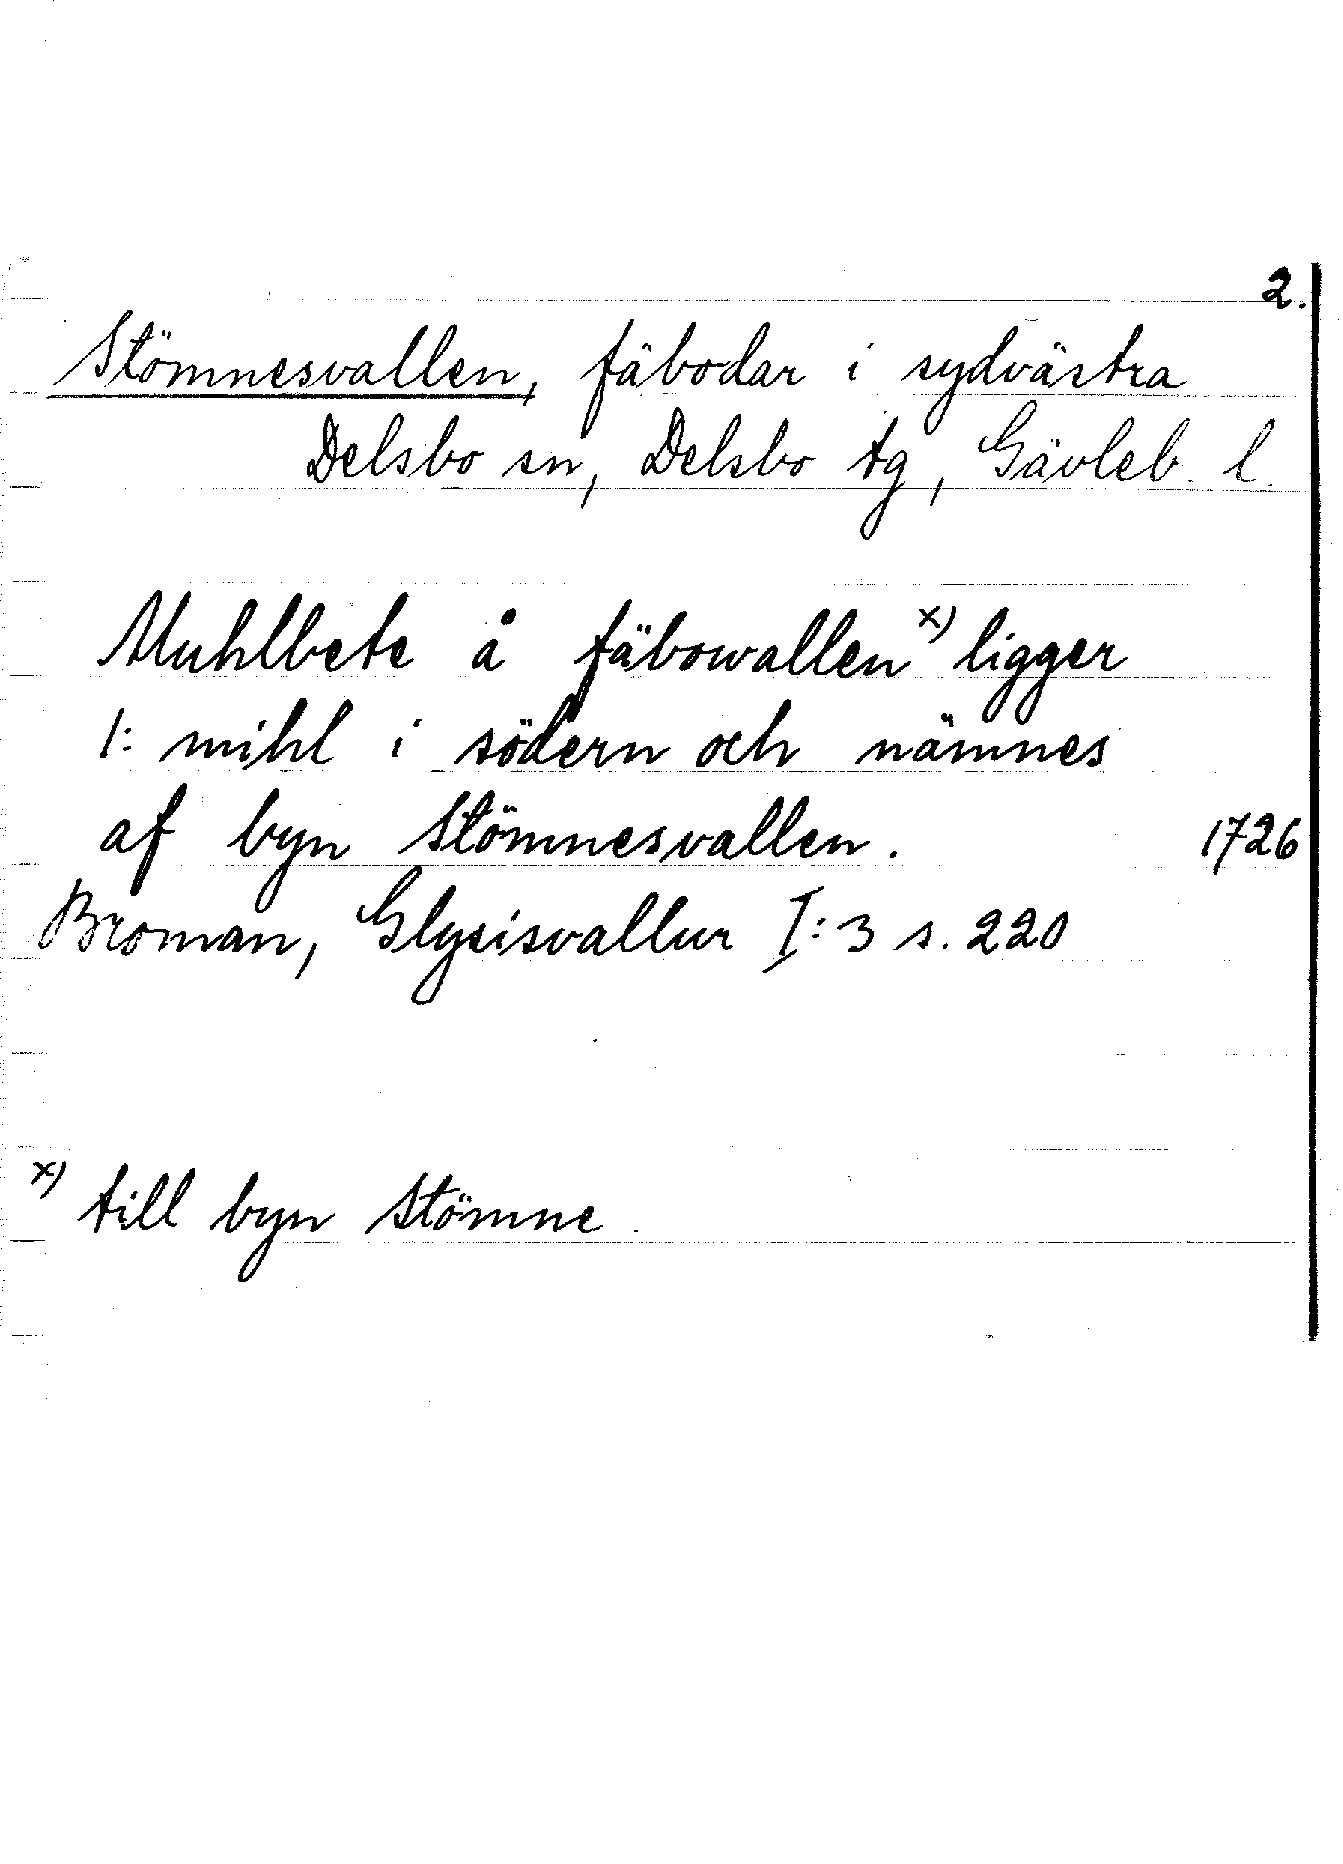 2.
Stömnesvallen, fäbodar i sydvästra
Delsbo sn, Delsbo tg, Gävleb. l.
Muhlbete å fäbowallen x) ligger
1: mihl i södern och nämnes
af byn Stömnesvallen. 1726
Broman, Glysisvallur I:3 s. 220
x) till byn Stömne.